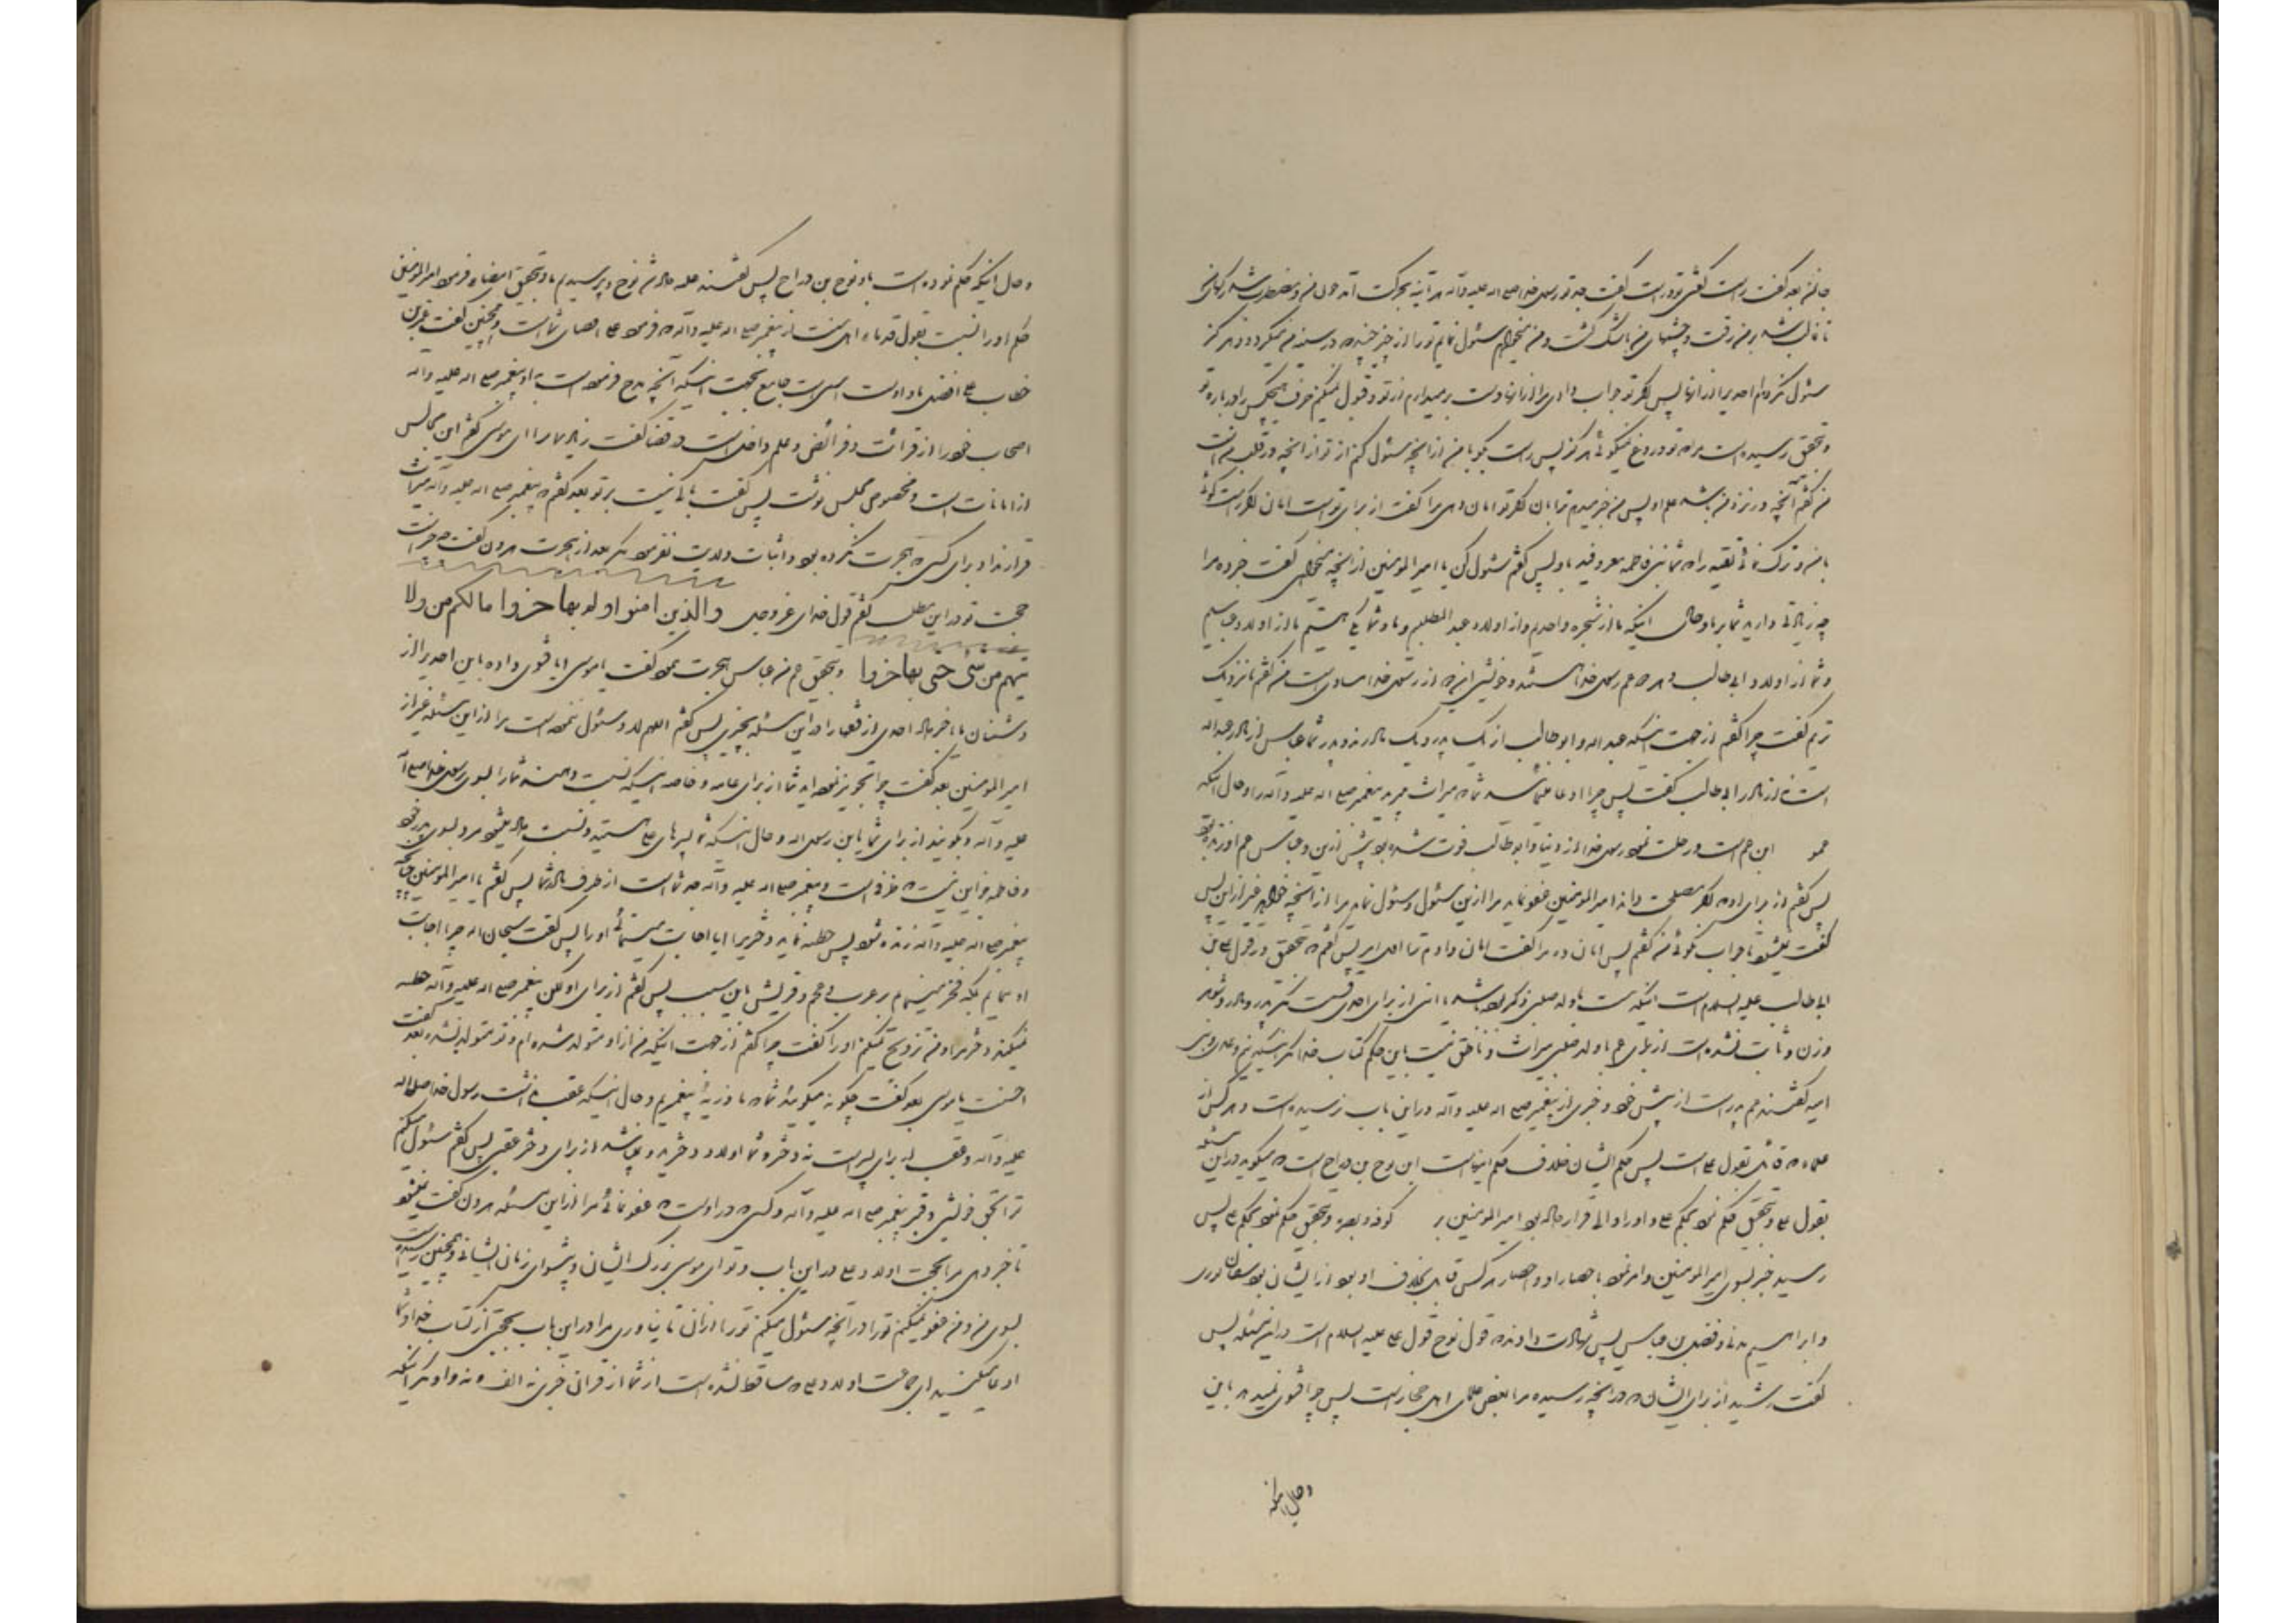 جانم بعد گفت راست گفتی تو و راست گفت جد تو رسول خدا صلی اله علیه و آله هر آینه بحرکت آمد خون من و مضطرب شد رگهای
تا غالب شد بر من رقت و چشمهای من باشک گشت و من میخواهم سئوال نمایم تو را از چیز چند که در سینه من میگردد و هرگز
سئوال نکرده‌ام احدیرا از آنها پس اگر تو جواب دادی مرا از آنها دست برمیدارم از تو و قبول نمیکنم حرف هیچکس را درباره تو
و بتحقیق رسیده است مرا که تو دروغ نمیگوئی هرگز پس راست بگو با من از آنچه سئوال کنم از تو از آنچه در قلب من است
من گفتم آنچه در نزد من باشد علم او پس من خبر میدهم ترا بآن اگر تو امان دهی مرا گفت از برای تو است امان اگر راست گوئی
با من و ترک نمائی تقیه را که شما بنی فاطمه معروفید باو پس گفتم سئوال کن یا امیر المومنین از آنچه میخواهی گفت خبر ده مرا
چه زیادتی دارید شما بر ما و حال اینکه ما از شجره واحدیم و از اولاد عبد المطلبیم و ما و شما یکی هستیم ما از اولاد عباسیم
و شما از اولاد ابی طالب و هر دو عم رسول خدا هستند و خویشی این دو از رسول خدا مساوی است من گفتم ما نزدیک
تریم گفت چرا گفتم از جهت اینکه عبد اله و ابو طالب از یک پدر و یک مادرند و پدر شما عباس از مادر عبد اله
است نه از مادر ابی طالب گفت پس چرا ادعا میکنید شما که میراث میبرید پیغمبر صلی اله علیه و آله را و حال اینکه
عمو ابن عم است و رحلت نمود رسول خدا از دنیا و ابو طالب فوت شده بود پیش از این و عباس عم او زنده بود
پس گفتم از برای او که اگر مصلحت داند امیر المومنین عفو نماید مرا از این سئوال و سئوال نماید مرا از آنچه خواهد غیر از این پس
گفت نمیشود تا جواب گوئی من گفتم پس امان ده مرا گفت امان دادم ترا پس گفتم که بتحقیق در قول علی بن
ابی طالب علیه السلام است اینکه نیست با ولد صلبی ذکر بوده باشد یا انثی از برای احدی قسمت مگر پدر و مادر و شوهر
و زن و ثابت نشده است از برای عم با ولد صلبی میراث و ناطق نیست باین حکم کتاب خدا مگر اینکه تیم و عدی و بنی
امیه گفتند عم پدر است از پیش خود و خبری از پیغمبر صلی اله علیه و آله در این باب نرسیده است و هر کس از
علماء که قائل بقول علی است پس حکم ایشان خلاف حکم اینهاست این نوح بن دراج است که میگوید در این مسئله
بقول علی و بتحقیق حکم نمود بحکم علی و او را والی قرار داده بود امیر المومنین بر کوفه و بصره و بتحقیق حکم نمود بحکم علی پس
رسید خبر بسوی امیر المومنین و امر نمود باحضار او و احضار هر کس قائل بخلاف او بود از ایشان بود سفیان ثوری
و ابراهیم مدنی و فضیل بن عیاض پس شهادت دادند که قول نوح قول علی علیه السلام است در این مسئله پس
گفت رشید از برای ایشان که در آنچه رسیده مرا بعضی علمای اهل حجاز است پس چرا فتوی نمیدهد باین
و حال اینکه
و حال اینکه حکم نموده است باو نوح بن دراج پس گفتند نوح و ترسیدیم ما و بتحقیق امضاء فرمود امیر المومنین
حکم او را نسبت بقول قدماء اهل سنت از پیغمبر صلی اله علیه و آله که فرمود علی اقضای شماست و همچنین گفت عمر بن
خطاب علی اقضی ما و او است اسمی است جامع بجهت اینکه آنچه مدح فرموده است باو پیغمبر صلی اله علیه و آله
اصحاب خود را از قرائت و فرائض و علم داخل است در قضا گفت زیاد نما مرا ای موسی گفتم این مجالس
از امانات است و مخصوص مجلس تو است پس گفت باکی نیست بر تو بعد گفتم که پیغمبر صلی اله علیه و آله میراث
قرار نداد برای کسی که هجرت نکرده بود و اثبات ولایت نفرمود مگر بعد از هجرت هرون گفت چه چیز است
حجت تو در این مطلب گفتم قول خدای عزوجل والذین امنو اولو یهاجروا مالکم من ولا
یتهم من شئ حتی یهاجروا و بتحقیق عم من عباس هجرت ننمود گفت یا موسی ایا فتوی داده باین احدیرا از
دشمنان ما یا خبر داد احدی از فقهاء را در این مسئله بچیزی پس گفتم اللهم لا و سئوال ننموده است مرا از این مسئله غیر از
امیر المومنین بعد گفت چرا تجویز نموده‌اید شما از برای عامه و خاصه اینکه نسبت دهند شما را بسوی رسول خدا صلی اله
علیه و آله و بگویند از برای شما یا بن رسول اله و حال اینکه شما پسرهای علی هستید و نسبت داده میشود مرد بسوی پدر خود
و فاطمه جز این نیست که ظرف است و پیغمبر صلی اله علیه و آله جد شماست از طرف مادر شما پس گفتم یا امیر المومنین اگر
پیغمبر صلی اله علیه و آله زنده شود پس خطبه نماید دختر ترا ایا اجابت مینمائی او را پس گفت سبحان اله چرا اجابت
او ننمایم بلکه فخر مینمایم بر عرب و عجم و قریش باین سبب پس گفتم از برای او لکن پیغمبر صلی اله علیه و آله خطبه
نمیکند دختر مرا و من تزویج نمیکنم او را گفت چرا گفتم از جهت اینکه من از او متولد شده‌ام و تو متولد نشده بعد گفت
احسنت یا موسی بعد گفت چگونه میگویید شما که ما ذریه پیغمبریم و حال اینکه عقب نداشت رسول خدا صلی اله
علیه و آله و عقب از برای پسر است نه دختر و شما اولاد دخترید و نمیباشد از برای دختر عقبی پس گفتم سئوال میکنم
ترا بحق خویشی و قبر پیغمبر صلی اله علیه و آله و کسی که در او است که عفو نمائی مرا از این مسئله هرون گفت نمیشود
تا خبر دهی مرا بحجت اولاد علی در این باب و تو ای موسی بزرگ ایشان و پیشوای زمان ایشانی و همچنین رسیده است
بسوی من و من عفو نمیکنم تو را در آنچه سئوال میکنم تو را از آن تا بیاوری مرا در این باب بحجتی از کتاب خدا و شما
ادعا میکنید ای جماعت اولاد علی که ساقط نشده است از شما از قران چیزی نه الف و نه واو مگر اینکه